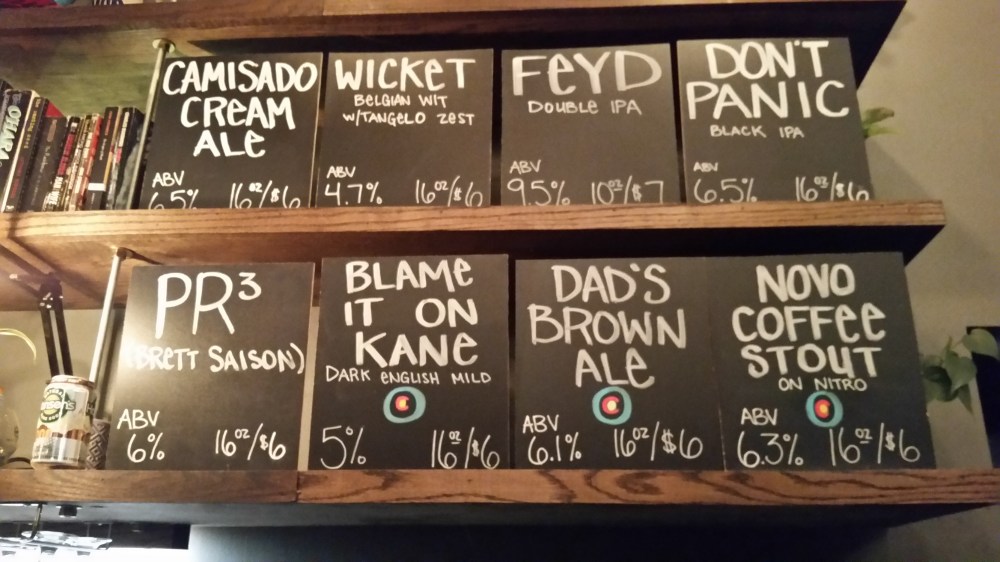 CAMISADO
CREAM
ALE
ABV
6.5% 16oz/$6
WICKET
BELGIAN WIT
W/TANGELO ZEST
ABV
4.7% 16oz/$6
FEYD
DOUBLE IPA
ABV
9.5% 10oz/$7
DON'T
PANIC
BLACK IPA
ABV
6.5% 16oz/$6
PR³
(BRETT SAISON)
ABV
6% 16oz/$6
BLAME
IT ON
KANE
DARK ENGLISH MILD
5% 16oz/$6
DAD'S
BROWN
ALE
ABV
6.1% 16oz/$6
NOVO
COFFEE
STOUT
ON NITRO
ABV
6.3% 16oz/$6